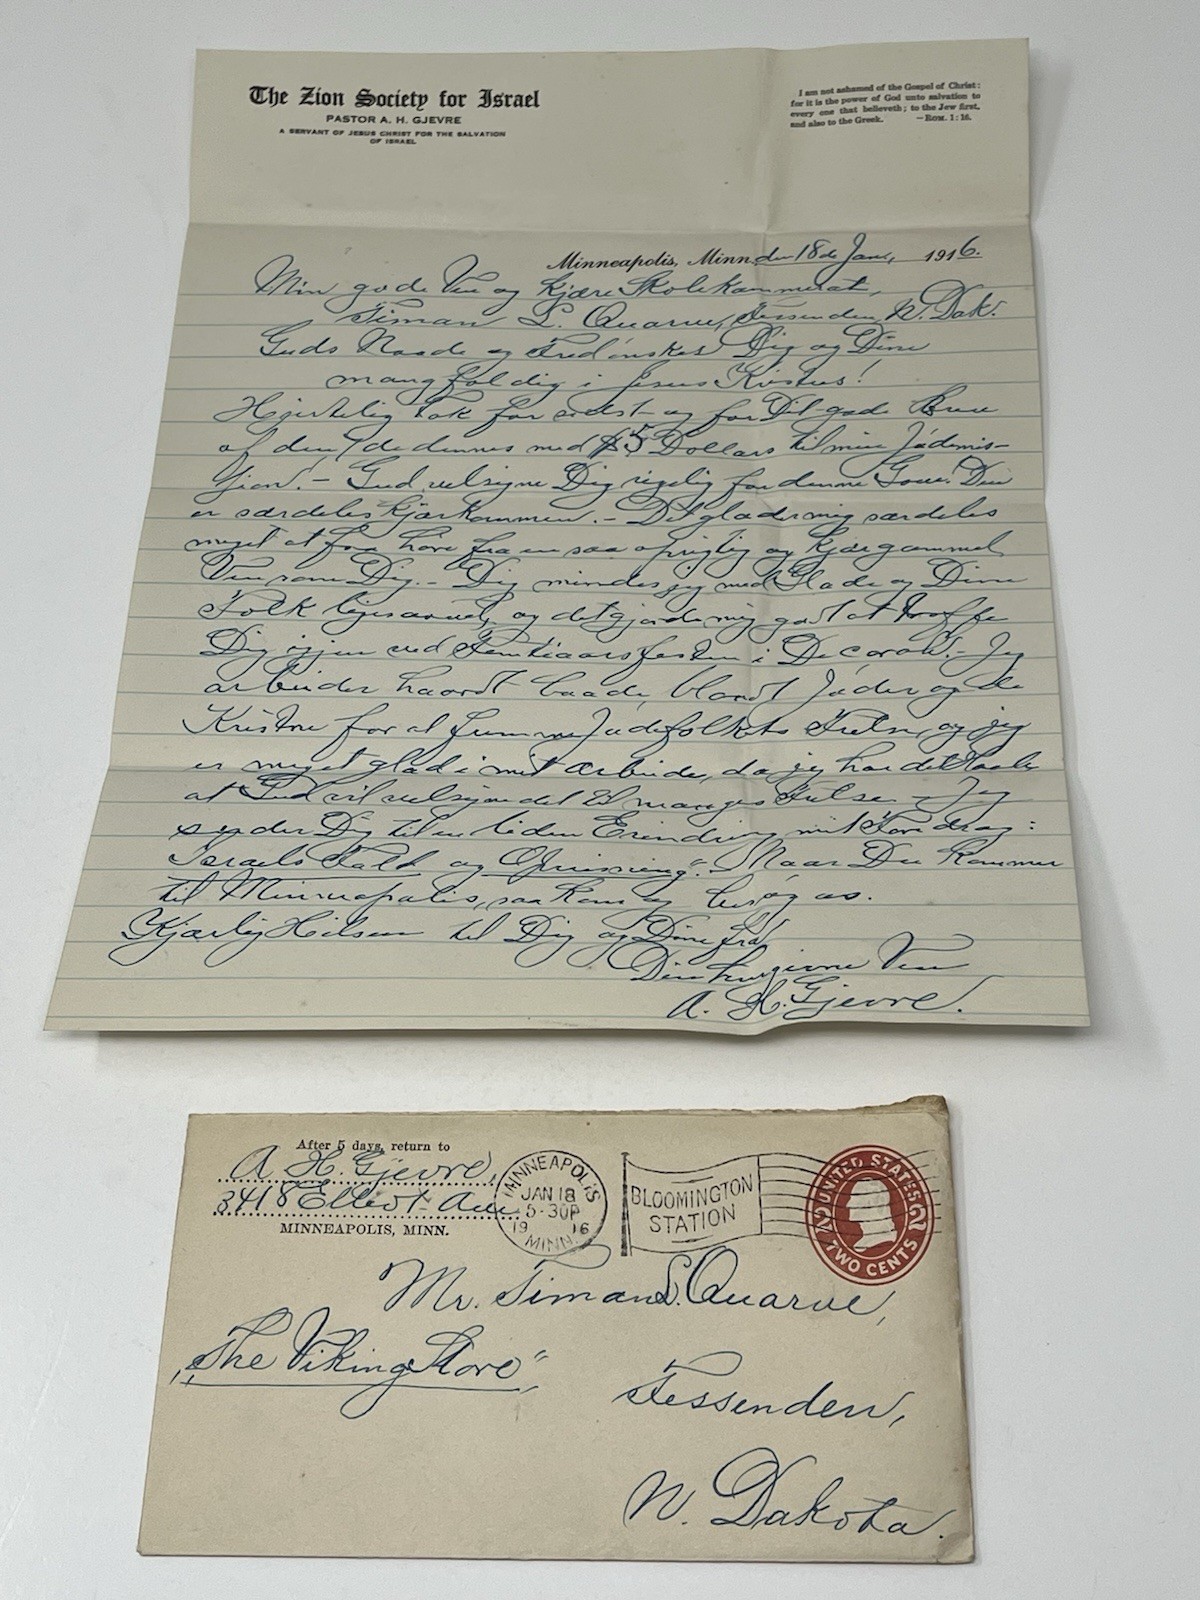 The Zion Society for Israel
PASTOR A. H. GJEVRE
A SERVANT OF JESUS CHRIST FOR THE SALVATION
OF ISRAEL
I am not ashamed of the Gospel of Christ:
for it is the power of God unto salvation to
every one that believeth; to the Jew first,
and also to the Greek. —ROM. 1:16.
Minneapolis, Minn. den 18de Jan., 1916.
Min gode Ven og kjære Skolekammerat,
Timan L. Quarve, Fessenden, N. Dak.
Guds Naade og Fred ønskes Dig og Dine
mangfoldig i Jesus Kristus!
Hjertelig Tak for sidst og for Dit gode Brev
af den 7de dennes med $5 Dollars til min Jødemis-
sion! - Gud velsigne Dig rigelig for denne Gave! Den
er særdeles kjærkommen. - Det glader mig særdeles
meget at faa høre fra en saa oprigtig og kjær gammel
Ven som Dig. - Dig mindes jeg med Glæde og Dine
Folk ligesaavel, og det gjorde mig godt at træffe
Dig igjen ved Femtiaarsfesten i Decorah. - Jeg
arbeider haardt baade blandt Jøder og de
Kristne for at fremme Jødefolkets Frelse, og jeg
er meget glad i mit Arbeide, da jeg har det Haab
at Gud vil velsigne det til manges Frelse. - Jeg
sender Dig til en liden Erindring mit Foredrag:
Israels Fald og Opreisning". - Naar Du kommer
til Minneapolis, saa kom og besøg os.
Kjærlig Hilsen til Dig og Dine fra
Din hengivne Ven
A. H. Gjevre.
After 5 days, return to
A. H. Gjevre,
3418 Elliot Ave.
MINNEAPOLIS, MINN.
MINNEAPOLIS
JAN 18
5-30P
1916
MINN.
BLOOMINGTON
STATION
UNITED STATES
2 2
TWO CENTS
Mr. Timan L. Quarve,
„The Viking Store"
Fessenden,
N. Dakota.